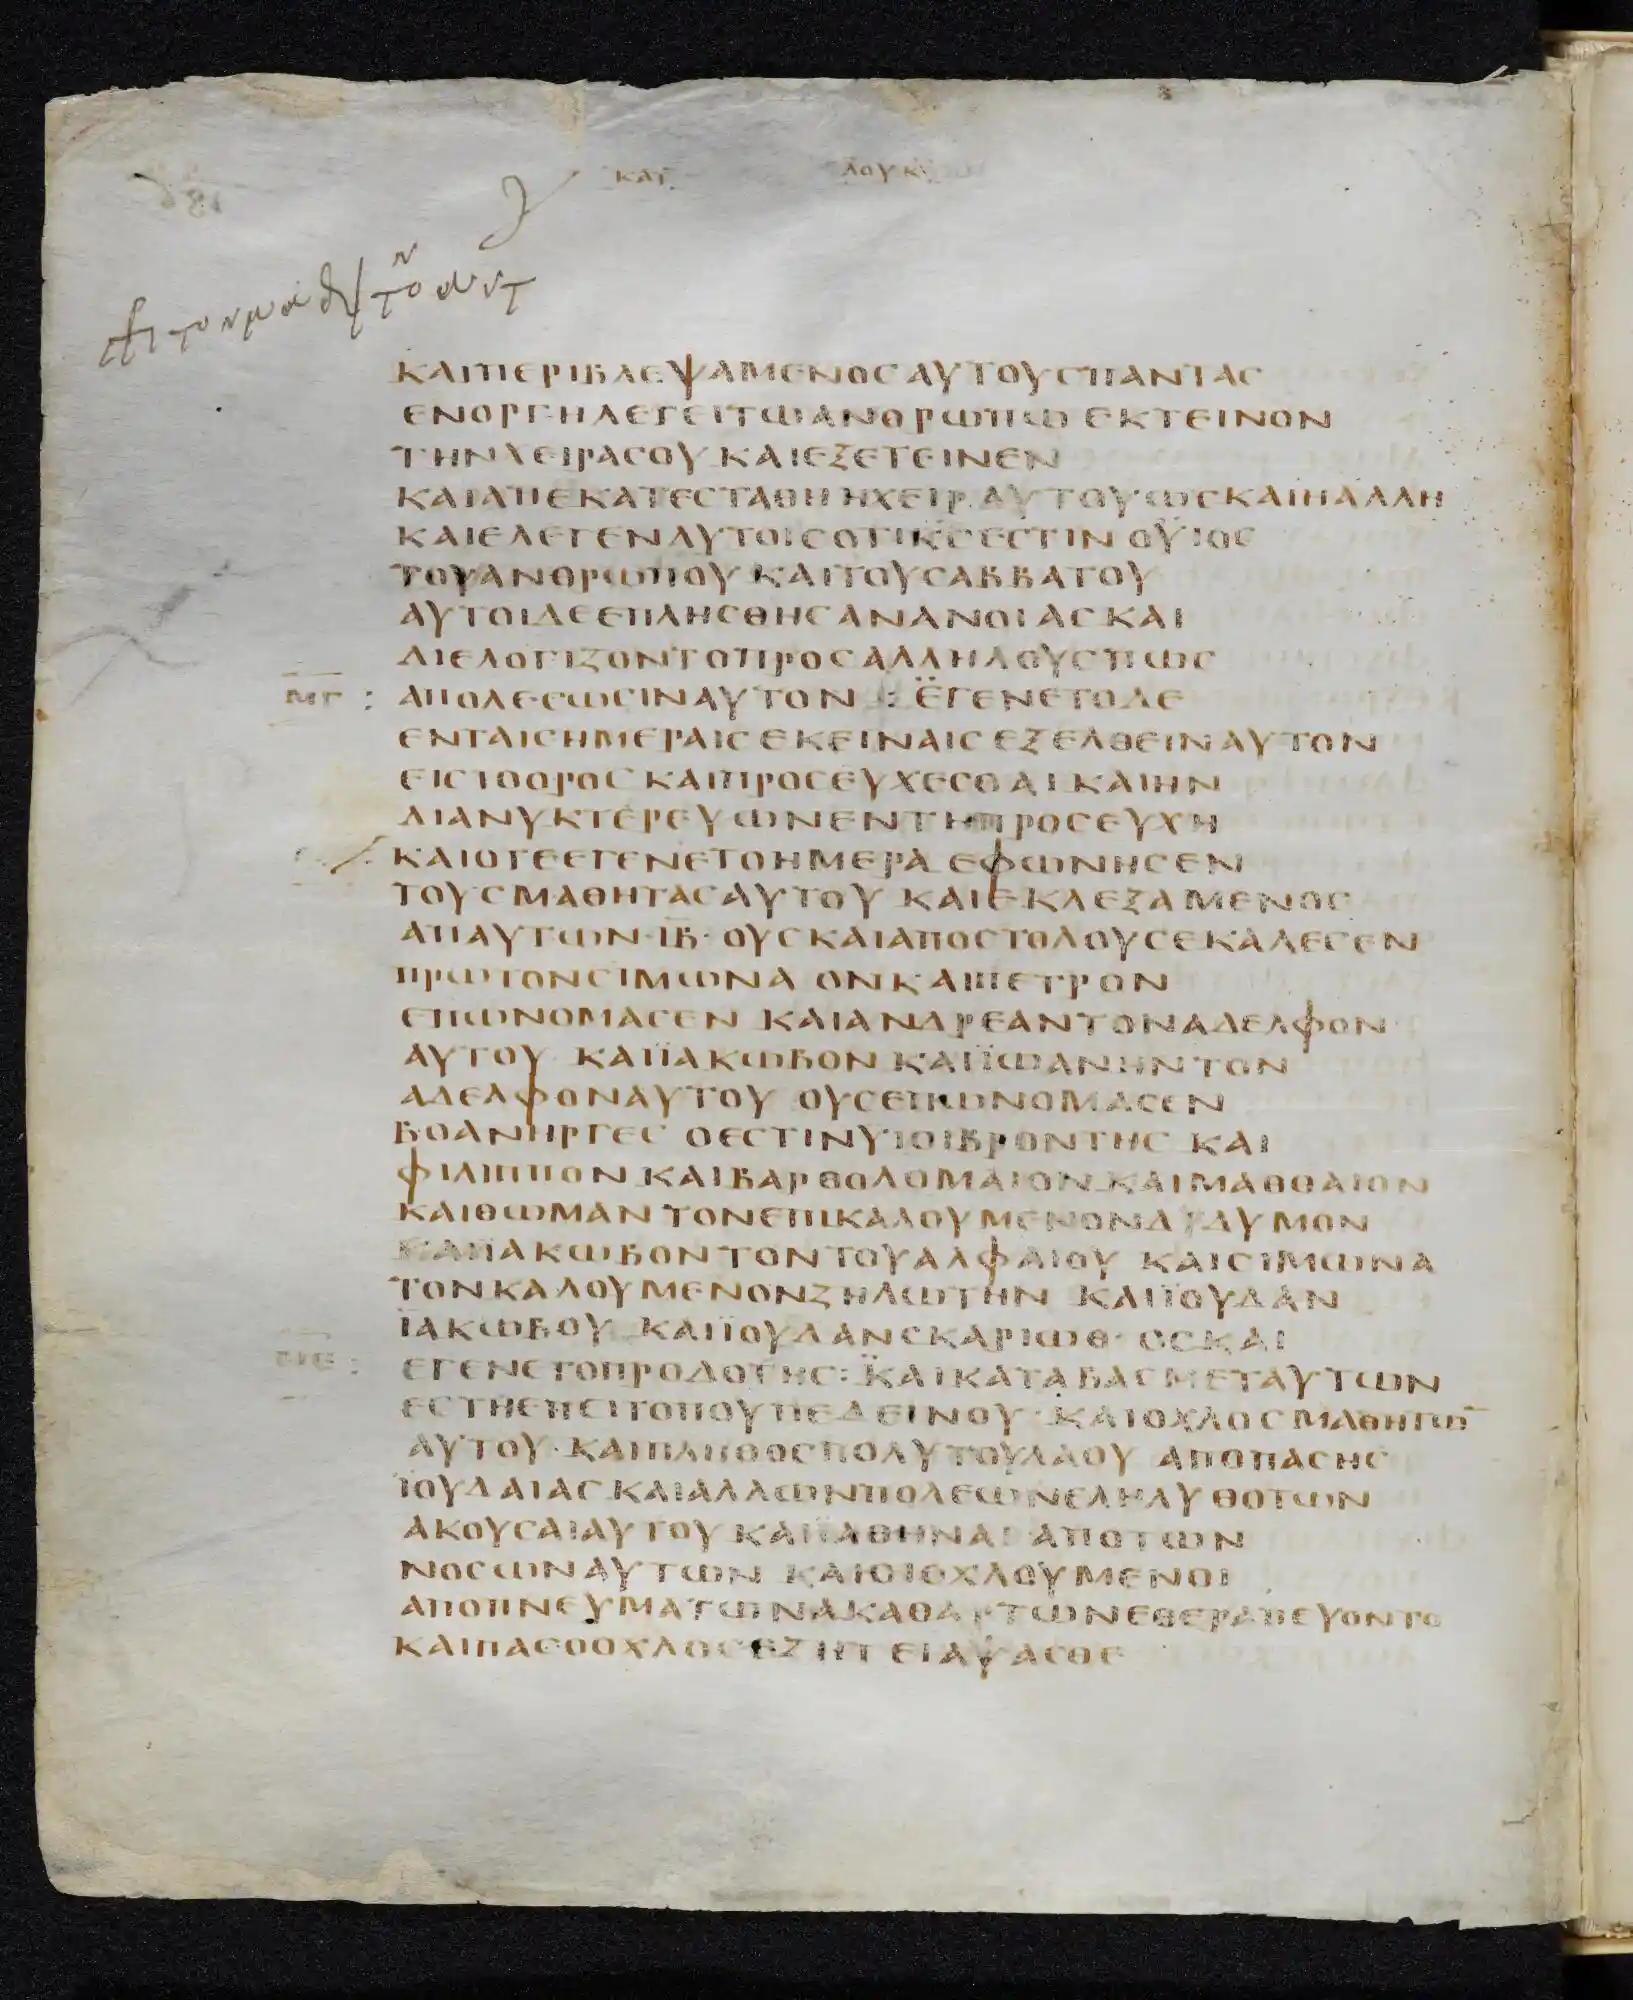 ΚΑΤ ΛΟΥΚ
ΚΑΙΠΕΡΙΒΛΕΨΑΜΕΝΟСΑΥΤΟΥСΠΑΝΤΑС
ΕΝΟΡΓΗΛΕΓΕΙΤΩΑΝΘΡΩΠΩ ΕΚΤΕΙΝΟΝ
ΤΗΝΧΕΙΡΑСΟΥ ΚΑΙΕΞΕΤΕΙΝΕΝ
ΚΑΙΑΠΕΚΑΤΕСΤΑΘΗ ΗΧΕΙΡ ΑΥΤΟΥ ΩС ΚΑΙΗΑΛΛΗ
ΚΑΙΕΛΕΓΕΝΑΥΤΟΙСΟΤΙΚ̅С̅ΕСΤΙΝ ΟΥΪΟС
ΤΟΥΑΝΘΡΩΠΟΥ ΚΑΙΤΟΥСΑΒΒΑΤΟΥ
ΑΥΤΟΙΔΕΕΠΛΗСΘΗСΑΝΑΝΟΙΑС ΚΑΙ
ΔΙΕΛΟΓΙΖΟΝΤΟΠΡΟСΑΛΛΗΛΟΥСΠΩС
Μ̅Γ̅ : ΑΠΟΛΕСΩСΙΝΑΥΤΟΝ : ΕΓΕΝΕΤΟΔΕ
ΕΝΤΑΙСΗΜΕΡΑΙС ΕΚΕΙΝΑΙС ΕΞΕΛΘΕΙΝΑΥΤΟΝ
ΕΙСΤΟΟΡΟС ΚΑΙΠΡΟСΕΥΧΕСΘΑΙ ΚΑΙΗΝ
ΔΙΑΝΥΚΤΕΡΕΥΩΝΕΝΤΗΠΡΟСΕΥΧΗ
ΚΑΙΟΤΕΕΓΕΝΕΤΟΗΜΕΡΑ ΕΦΩΝΗСΕΝ
ΤΟΥСΜΑΘΗΤΑСΑΥΤΟΥ ΚΑΙΕΚΛΕΞΑΜΕΝΟС
ΑΠΑΥΤΩΝ·Ι̅Β̅· ΟΥСΚΑΙΑΠΟСΤΟΛΟΥСΕΚΑΛΕСΕΝ
ΠΡΩΤΟΝСΙΜΩΝΑ ΟΝΚΑΙΠΕΤΡΟΝ
ΕΠΩΝΟΜΑСΕΝ ΚΑΙΑΝΔΡΕΑΝΤΟΝΑΔΕΛΦΟΝ
ΑΥΤΟΥ ΚΑΙΪΑΚΩΒΟΝ ΚΑΙΪΩΑΝΗΝΤΟΝ
ΑΔΕΛΦΟΝΑΥΤΟΥ ΟΥСΕΠΩΝΟΜΑСΕΝ
ΒΟΑΝΗΡΓΕС ΟΕСΤΙΝΥΙΟΙΒΡΟΝΤΗС ΚΑΙ
ΦΙΛΙΠΠΟΝ ΚΑΙΒΑΡΘΟΛΟΜΑΙΟΝ ΚΑΙΜΑΘΘΑΙΟΝ
ΚΑΙΘΩΜΑΝ ΤΟΝΕΠΙΚΑΛΟΥΜΕΝΟΝΔΙΔΥΜΟΝ
ΚΑΙΪΑΚΩΒΟΝ ΤΟΝΤΟΥΑΛΦΑΙΟΥ ΚΑΙСΙΜΩΝΑ
ΤΟΝΚΑΛΟΥΜΕΝΟΝΖΗΛΩΤΗΝ ΚΑΙΪΟΥΔΑΝ
ΪΑΚΩΒΟΥ ΚΑΙΪΟΥΔΑΝСΚΑΡΙΩΘ· ΟСΚΑΙ
Μ̅Ε̅ : ΕΓΕΝΕΤΟΠΡΟΔΟΤΗС: ΚΑΙΚΑΤΑΒΑСΜΕΤΑΥΤΩΝ
ΕСΤΗΕΠΕΙΤΟΠΟΥΠΕΔΕΙΝΟΥ· ΚΑΙΟΧΛΟСΜΑΘΗΤΩ̅
ΑΥΤΟΥ· ΚΑΙΠΛΗΘΟСΠΟΛΥΤΟΥΛΑΟΥ ΑΠΟΠΑСΗС
ΪΟΥΔΑΙΑС ΚΑΙΑΛΛΩΝΠΟΛΕΩΝΕΛΗΛΥΘΟΤΩΝ
ΑΚΟΥСΑΙΑΥΤΟΥ ΚΑΙΪΑΘΗΝΑΙ ΑΠΟΤΩΝ
ΝΟСΩΝΑΥΤΩΝ ΚΑΙΟΙΟΧΛΟΥΜΕΝΟΙ
ΑΠΟΠΝΕΥΜΑΤΩΝΑΚΑΘΑΡΤΩΝΕΘΕΡΑΠΕΥΟΝΤΟ
ΚΑΙΠΑСΟΟΧΛΟСΕΖΗΤΕΙΑΨΑСΘΕ